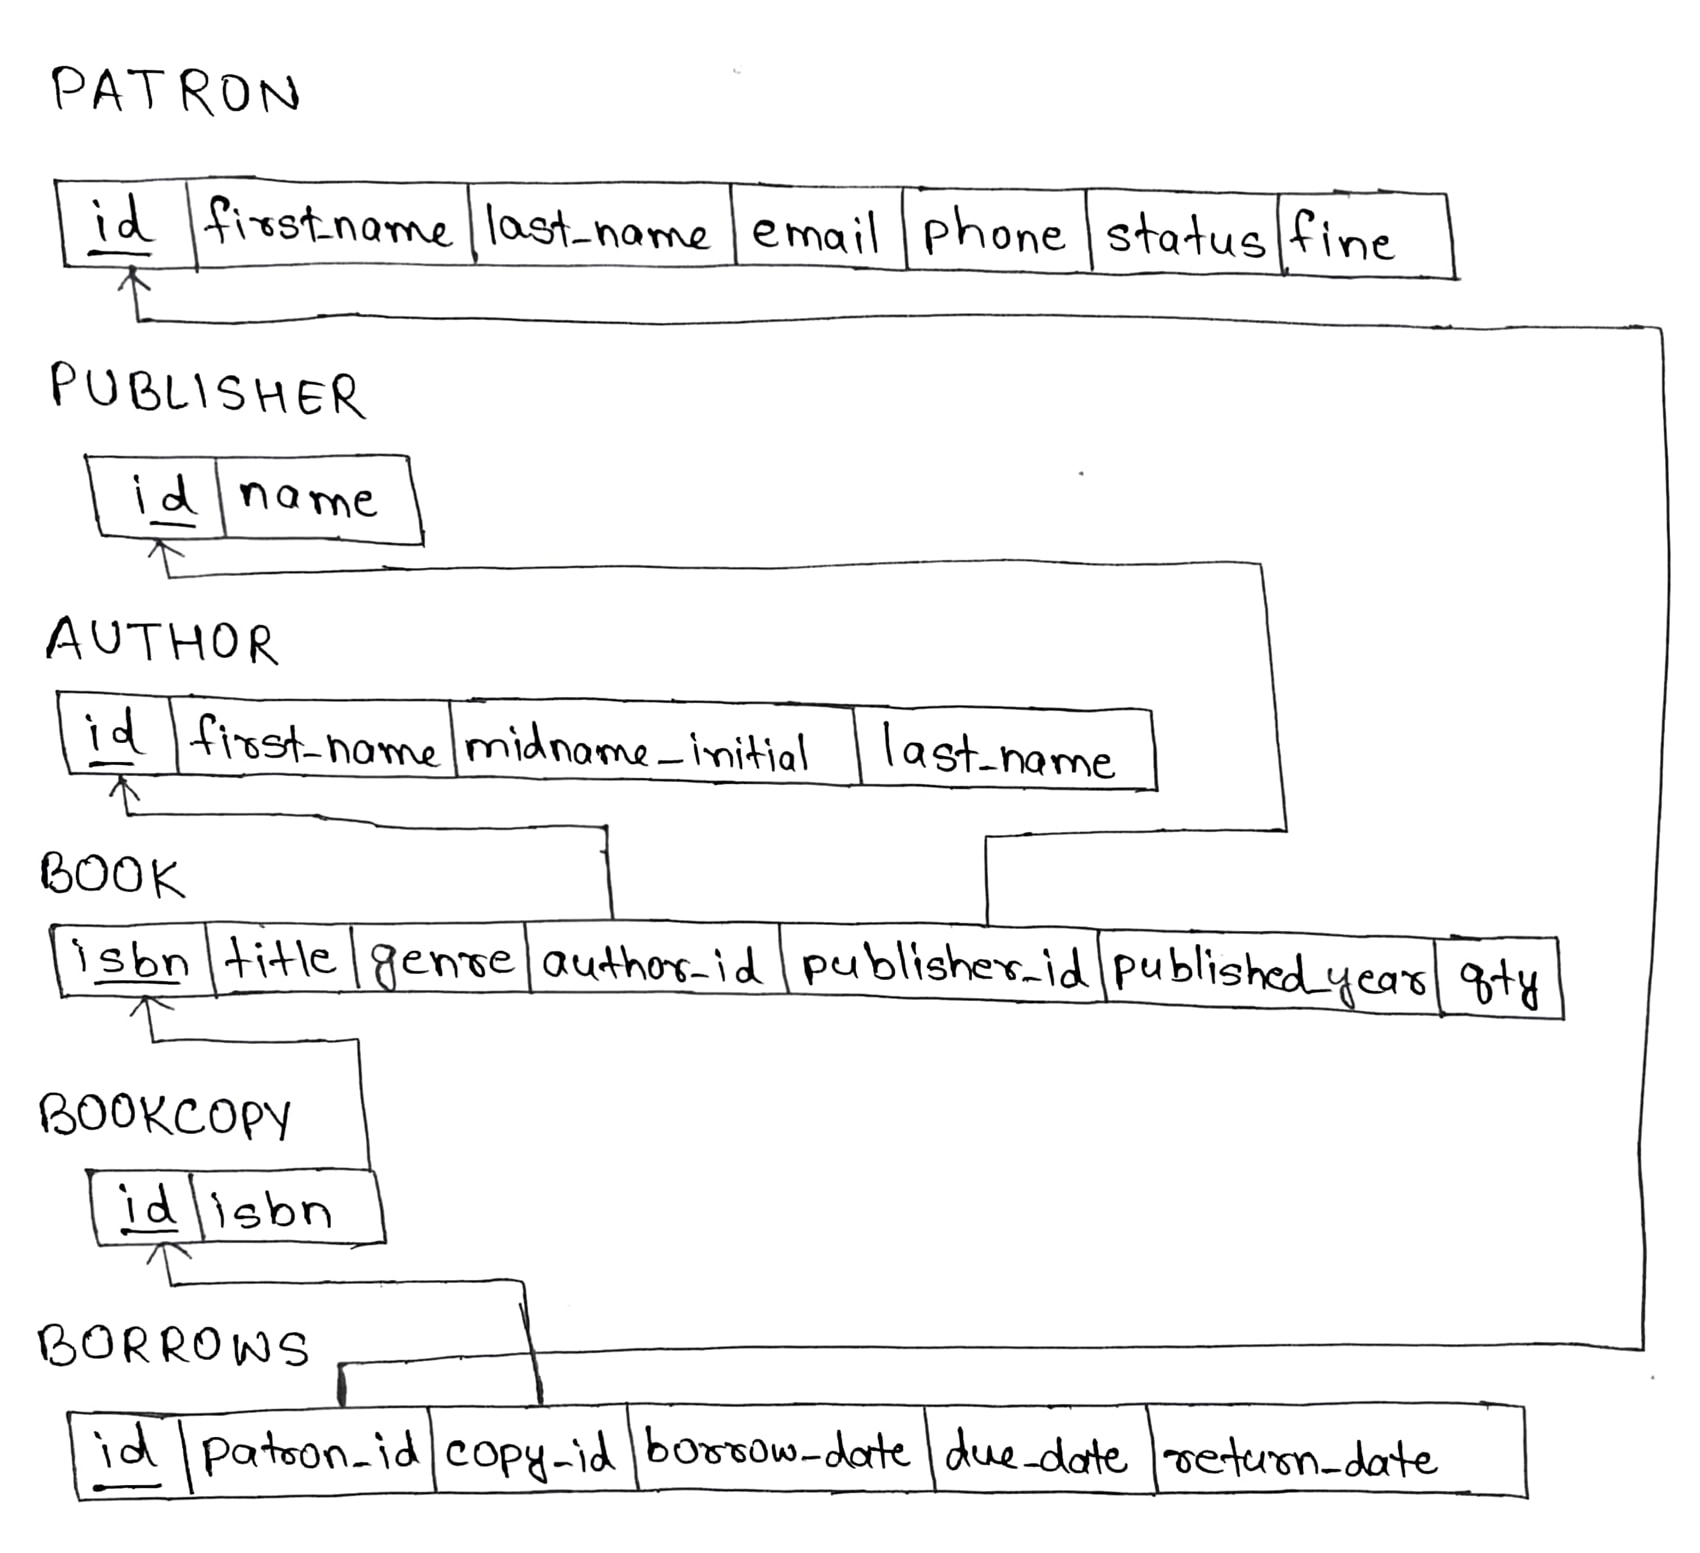 PATRON
id first_name last_name email phone status fine
PUBLISHER
id name
AUTHOR
id first_name midname_initial last_name
BOOK
isbn title genre author_id publisher_id published_year qty
BOOKCOPY
id isbn
BORROWS
id patron_id copy_id borrow_date due_date return_date